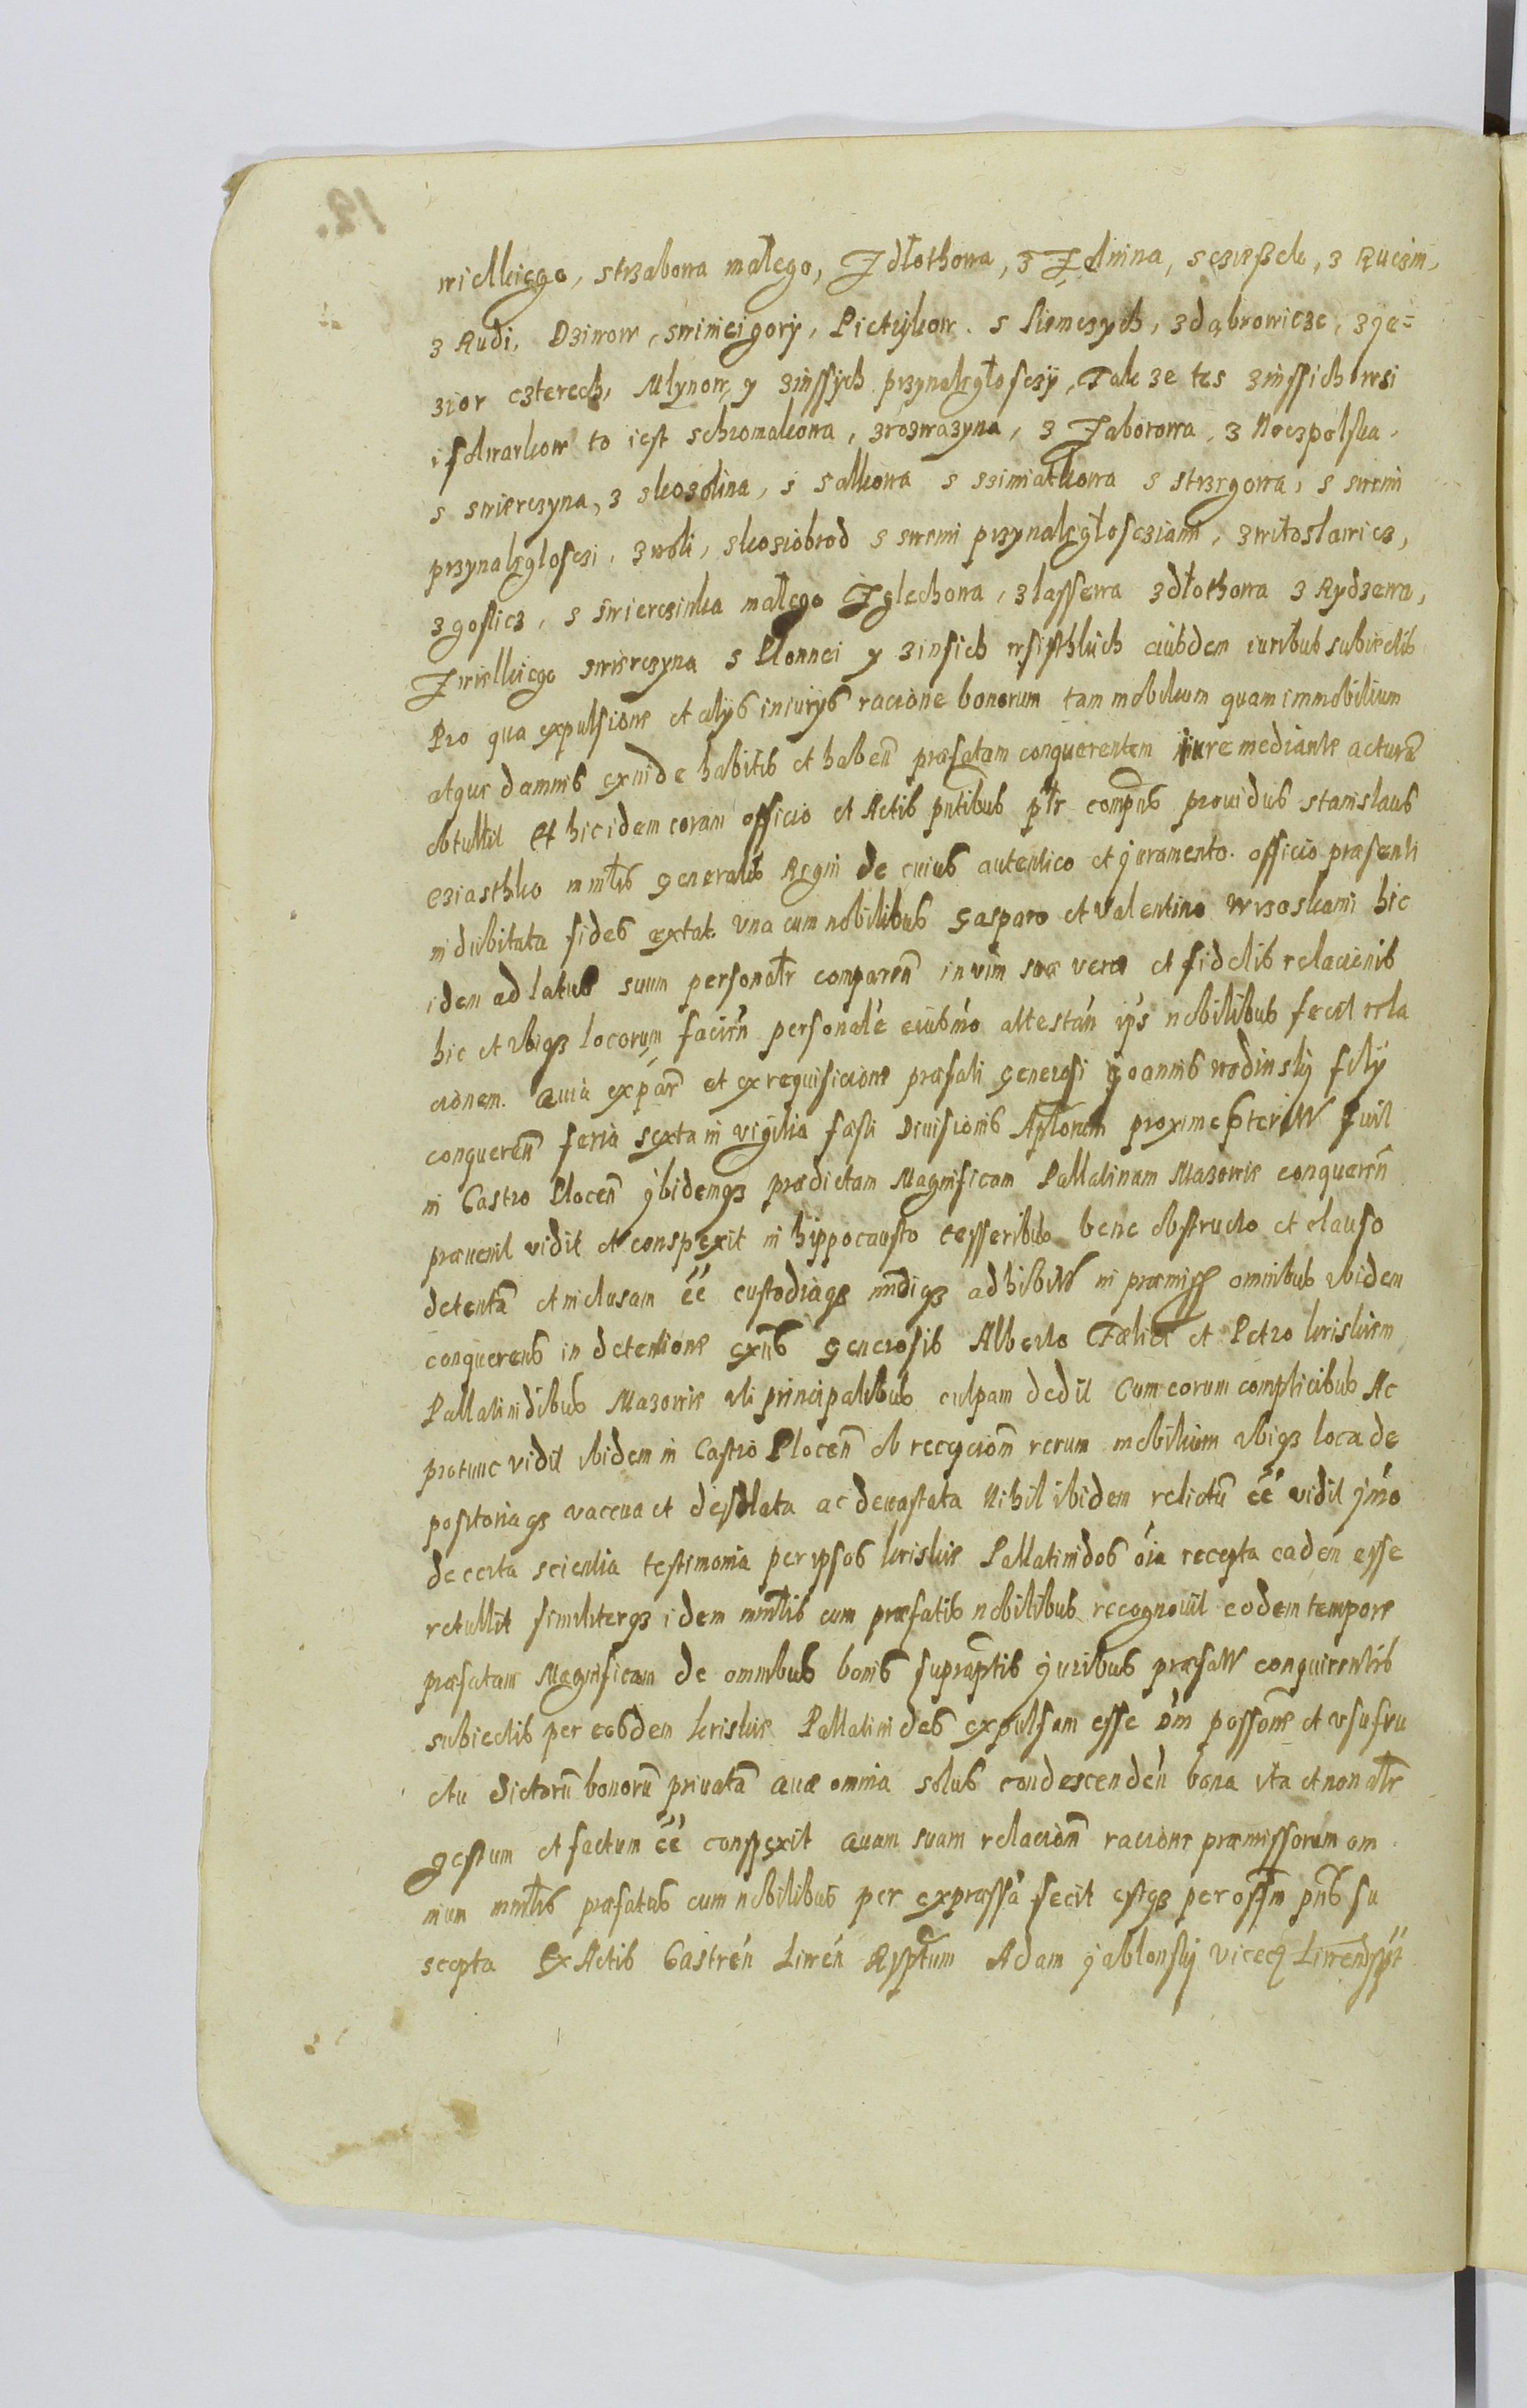 wielkiego, strzabowa małego, Zdłothowa, z Zelnina, sczeßek, z Ruczin,
z Rudi, Dziwow, swiniei gory, Pietrykow. s Siemczych, z dąbrowicze, z ye=
zior czterech, Młynow, y zinssÿch przynalęgłosczÿ, Tak ze tes zinssich wsi
i folwarkow to iest schromakowa, z rozwazyna, z Zaborowa, z Noczpolska,
s swierczyna, z skoszolina, s salkowa s szimiatkowa s strzegowa, s swemi
przynalęglosczi, z woli, skosiobrod s swemi przynalęgłoscziami, z witoslawicz,
z goslicz, s swiercsinka małego Zglechowa, z lassewa z dłothowa z Rydzewa,
Zwielkiego swierczyna s Płonnei y zinsich wsisthkich eiusdem iuribus subiectis
Pro qua expulsione et alijs iniurijs racione bonorum tam mobilium quam immobilium
atque damnis exinde habitis et haben̄ præfatam conquerentem iure mediante acturā
obtullit Et hic idem coram officio et Actis pn̄tibus pl̄r compn̄s prouidus stanislaus
cziasthko minl̄is generalis Regni de cuius autentico et juramento officio præsenti
indubitata fides extat una cum nobilibus Gasparo et Valentino Wrzoskami hic
idem ad latus suum personal̄r comparen̄ in vim suæ veræ et fidelis relacionis
hic et vbiq3 locorum facień personale eiusmo attestań ip̄s nobilibus fecit rela
cionem. Quia ex par̄ et ex requisicione præfati generosi Joannis wodinskÿ filÿ
conqueren̄ feria sexta in vigilia fæsti Diuisionis Apl̄orum proxime p̄terit̄ fuit
in Castro Plocen̄ ybidemq3 prædictam Magnificam Pallatinam Mazowie conqueren̄
præuenit vidit et conspexit in hippocausto cesseribus bene obstructo et clauso
detentā et inclusam ēē custodiaq3 undiq3 adhibit̄ in præmiss̄ omnibus ibidem
conquerens in detentione exn̄s generosis Alberto Fælici et Petro kriskiem
Pallatinidibus Mazowie uti principalibus culpam dedit Cum eorum complicibus Ac
protunc vidit ibidem in Castro Plocen̄ ob recepcion̄ rerum mobilium vbiq3 loca de
positoriaq3 vaccua et desolata ac deuastata Nihil ibidem relictū ēē vidit ymo
de certa scientia testimonia per ipsos kriskie Pallatinidos oīa recepta eadem esse
retullit similiterq3 idem minl̄is cum præfatis nobilibus recognouit eodem tempore
præfatam Magnificam de omnibus bonis suprap̄tis juribus præfat̄ conquirentis
subiectis per eosdem kriskie Pallatinides expulsam esse om̄ possone et vsufru
ctu dictorū bonorū priuatā Quæ omnia solus condescendeń bona ita et non al̄r
gestum et factum ēē conspexit Quam suam relacion̄ racione præmissorum om
nium minl̄is præfatus cum nobilibus per expræssa fecit estq3 per offm̄ pn̄s su
scepta Ex Actis Castreń Liweń Rptum Adam jablonskÿ viceC Liwens̄